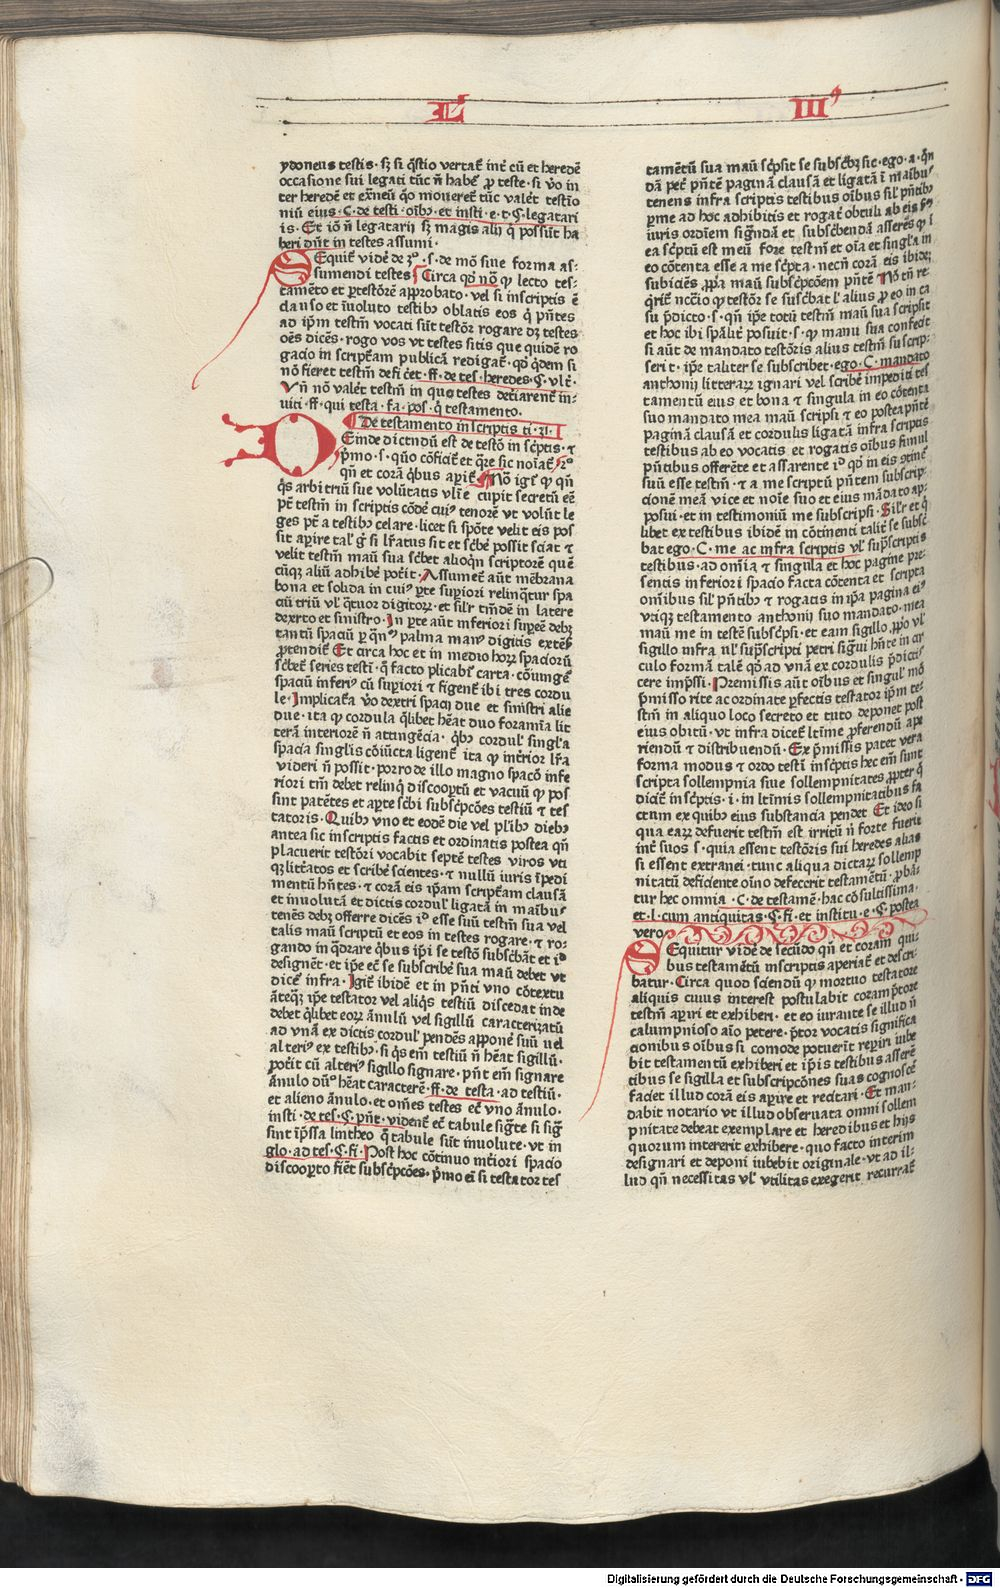 L III
ydoneus testis · sꝫ si q̄stio vertat̄ int̄ cū et heredē
occasione sui legati tūc n̄ habet̄ ꝓ teste · si v̄o in
ter heredē et exneū q̄o moueret̄ tūc valet̄ testīo
niū eius · C · de testi · oībꝰ et insti · e · t · C · legatari
is · Et iō n̄ legatarij sꝫ magis alij q̄ possūt ha
beri dn̄t in testes assumi ·
SEquit̄ vidē de ꝛꝰ · s · de mō siue forma as-
sumendi testes Circa qd̄ nō ꝙ lecto tes-
tamēto et ꝑ testorē approbato · vel si inscriptis ē
clauso et īuoluto testibꝰ oblatis eos q̄ pn̄tes
ad ip̄m testm̄ vocati sūt testōꝛ rogare dꝫ testes
oēs dicēs · rogo vos vt testes sitis que quidē ro
gacio in scriptam publicā redigat̄ · qd̄ q̄dem si
nō fieret testm̄ defi cet̄ · ff · de tes · heredes · C · vlt̄ ·
Vn̄ nō valet̄ testm̄ in quo testes detiarent̄ in-
uiti · ff · qui testa · fa · pos · q̄ testamento ·
De testamento inscriptis ti · ꝛı ·
DEinde dictndū est de testō in sc̄ptis · ⁊
p̄mo · s · q̄uo cōficit̄ et q̄re sic noīat̄ · ꝛꝰ
qn̄ et corā q̄bus apit̄ · Nō igit̄ ꝙ qn̄
q̄s arbitriū sue volūtatis vlt̄e cupit secretū eē
pt̄ testm̄ in scriptis cōdē cuiꝰ tenorē vt volūt le
ges pt̄ a testibꝰ celare · licet si spōte velit eis pos
sit apire tal̄ g̊ si lr̄atus sit et sc̄bē possit sciat ⁊
velit testm̄ maū sua sc̄bet alioq̄n scriptorē quē
cūqꝫ aliū adhibē pot̄it · Assumet̄ aūt mēbrana
bona et solida in cuiꝰ ꝑte supiori relinq̄tur spa
ciū triū vl̄ q̄tuor digitoꝝ · et sil̄r tm̄dē in latere
dexrto et sinistro · In ꝑte aūt inferiori supeē debꝫ
tantū spaciū ꝑ qn̄ꝰ palma manꝰ digitis extēsꝭ
ꝓtendit̄ Et circa hoc et in medio hoꝝ spacioꝝ
sc̄bet̄ series testi · q̄ facto plicabt̄ carta · cōiungē
spaciū inferiꝰ cū supiori ⁊ figent̄ ibi tres cordu
le · Implicat̄a v̄o dextri spacij due et sinistri alie
due · ita ꝙ cordula q̄libet hēat duo foramīa lit
terā interiorē n̄ attingēcia · q̄bꝰ cordul̄ singl̄a
spacia singlis cōiūcta ligent̄ ita ꝙ int̄rior lr̄a
videri n̄ possit · porro de illo magno spacō infe
riori tm̄ debet relinq̄ discooptū et vacuū ꝙ pos
sint patētes et apte sc̄bi subsc̄pcōes testiū ⁊ tes
tatoris · Quibꝰ vno et eodē die vel pl̄ibꝰ diebꝰ
antea sic inscriptis factis et ordinatis postea qn̄
placuerit testōri vocabit septē testes viros vti
qꝫ litt̄atos et scribē scientes · ⁊ nullū iuris īpedi
mentū hn̄tes · ⁊ corā eis ip̄am script̄am clausā
et inuolutā et dictis cordul̄ ligatā in maībuꝰ
tenēs debꝫ offerre dicēs iꝰ esse suū testm̄ sua vel
talis maū scriptū et eos in testes rogare · ⁊ ro-
gando in q̄drare q̄bus ip̄i se testō subsc̄bāt et iꝰ
designēt · et ip̄e et̄ se subscribē sua maū debet vt
dicet̄ infra · Igit̄ ibidē et in pn̄ti vno cōtextu
ānteqꝫ ip̄e testator vel aliq̄s testiū discedat inde
debet q̄libet eoꝝ ānulū vel sigillū caracterizatū
ad vnā ex dictis cordul̄ pendēs apponē suū vel
alteriꝰ ex testibꝰ · si q̄s em̄ testiū n̄ hēat sigillū ·
ꝓtit cū alteriꝰ sigillo signare · pn̄t em̄ signare
ānulo dūꝰ hēat caracterē · ff · de testa · ad testiū ·
et alieno ānulo · et om̄es testes et̄ vno ānulo ·
insti · de tes · C · pn̄t · vident̄ et̄ tabule sigt̄e si siḡ
sint ip̄ssa lintheo q̄ tabule sūt inuolute · vt in
glo · ad tes · C · fi · Post hoc cōtinuo int̄iori spacio
discoopto fiēt subsc̄pcōes · p̄mo eī si testator tes
tamētū sua maū sc̄psit se subsc̄bꝫ sic · ego · a · q̄n
dā pet̄ pn̄tē paginā clausā et ligatā ī maībuꝰ
tenens infra scriptis testibus oībus sil̄ pn̄tibꝰ
ꝑme ad hoc adhibitis et rogat̄ obtuli ab eis
iuris ordīem sigr̄dā et subsc̄bendā asserēs ꝙ ī
ea sc̄ptū est meū fore testm̄ et oīa et singl̄a in
eo cōtenta esse a me sc̄pta · necn̄ corā eis ibideꝫ
subiciēs ꝓpa maū subsc̄pcōem pn̄tē No tn̄ re
q̄rit̄ nccīo ꝙ testōr se susc̄bat l̄ alius ꝓ eo in ca
su p̄dicto · s · qn̄ ip̄e totū testm̄ maū sua scripsit
et hoc ibi spālit̄ posuit · s · ꝙ manu sua confecit
si aūt de mandato testōris alius testm̄ suscrip-
serit · ip̄e taliter se subscribet · ego · C · mandato
anthonij litteraꝝ ignari vel scribē impediti tes
tamentū eius et bona ⁊ singula in eo cōtenta
suo mandato mea maū scripsi ⁊ eo postea pn̄tē
paginā clausā et cordulis ligatā infra scriptis
testibus ab eo vocatis et rogatis oībus simul
pn̄tibus offerēte et assarente iꝰ qd̄ in eis ꝯtinet̄
suū esse testm̄ · ⁊ a me scriptū pn̄tem subscrip-
cionē meā vice et noīe suo et eius mādato ap-
posui · et in testimoniū me subscripsi · Sil̄r et q̄
libet ex testibus ibidē in cōtinenti talit̄ se subsc̄
bat ego · C · me ac infra scriptis vl̄ sup̄scriptis
testibus · ad om̄ia ⁊ singula et hoc pagine pre-
sentis inferiori spacio facta cōtenta et scripta
om̄ibus sil̄ pn̄tibꝰ ⁊ rogatis in ip̄a pagina eiꝰ
vtiqꝫ testamento anthonij suo mandato · mea
maū me in testē subsc̄psi · et eam sigillo ꝓpo vl̄
sigillo infra ul̄ sup̄scripti petri sigr̄ui hn̄te in cir
culo formā talē qd̄ ad vnā ex cordulis p̄dictis
cere imp̄ssi · Premissis aūt oībus et singul̄ mō
p̄misso rite ac ordinate ꝑfectis testator ip̄m te-
stm̄ in aliquo loco secreto et tuto deponet post
eius obitū · vt infra dicet̄ ltīme ꝓferendū ape
riendū ⁊ distribuendū · Ex p̄missis patet vera
forma modus ⁊ ordo testī insc̄ptis hec em̄ sunt
scripta sollempnia siue sollempnitates ꝓpter q̄
dicit̄ insc̄ptis · i · in ltīmis sollempnitatibus fa
ctum ex quibꝰ eius substancia pendet Et ideo si
qua eaꝝ defuerit testm̄ est irritū n̄ forte fuerit
int̄ suos s · quia essent testōris sui heredes alias
si essent extranei · tunc aliqua dictaꝝ sollemp
nitatū deficiente oīno defecorit testamētū · ꝓbā-
tur hec omnia · C · de testamē · hac cōsultissima ·
et · l · cum antiquitas · C · fi · et institu · e · C · postea
vero
SEquitur videt̄ de secūdo qn̄ et coram qui-
bus testamētū inscriptis aperiat̄ et descri-
batur · Circa quod sciendū ꝙ mortuo testatore
aliquis cuius interest postulabit coram p̄tore
testm̄ apiri et exhiberi · et eo iurante se illud n̄
calumpnioso aīo petere · p̄tor vocatis significa
cionibus oībus si comode potuerīt repiri iube
bit testamentū exhiberi et ip̄is testibus asserē
tibus se sigilla et subscripcōnes suas cognoscē
faciet illud corā eis apire et recitari · Et man-
dabit notario vt illud obseruata omni sollem
pnitate debeat exemplare et heredibus et hijs
quorum intererit exhibere · quo facto interim
designari et deponi iubebit originale · vt ad il-
lud qn̄ necessitas vl̄ vtilitas exegerit recurrat̄
Digitalisierung gefördert durch die Deutsche Forschungsgemeinschaft - DFG